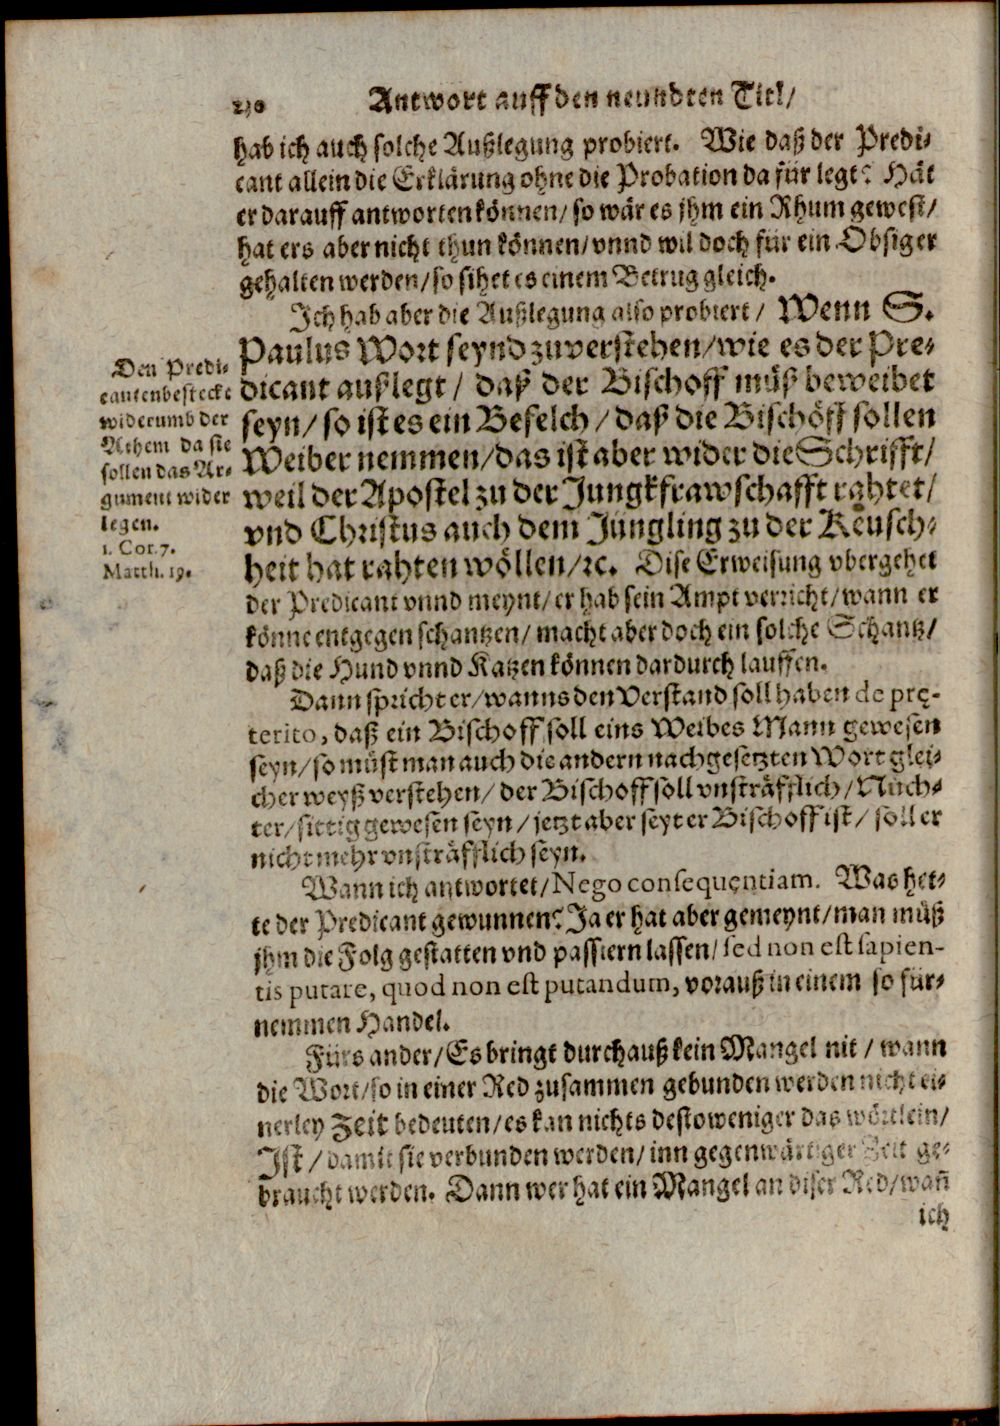 Antwort auff den neundten Titl/
hab ich auch solche Außlegung probiert. Wie daß der Predi-
cant allein die Erklärung ohne die Probation da für legt? Hät
er darauff antworten können/ so wär es jhm ein Rhum gewest/
hat ers aber nicht thun können/ vnnd wil doch für ein Obsiger
gehalten werden/ so sihet es einem Betrug gleich.
Ich hab aber die Außlegung also probiert/ Wenn S.
Paulus Wort seynd zuverstehen/ wie es der Pre-
dicant außlegt/ daß der Bischoff müß beweibet
seyn/ so ist es ein Befelch/ daß die Bischöff sollen
Weiber nemmen/ das ist aber wider die Schrifft/
weil der Apostel zu der Jungkfrawschafft rahtet/
vnd Christus auch dem Jüngling zu der Keusch-
heit hat rahten wöllen/ ꝛc. Dise Erweisung vbergehet
der Predicant vnnd meynt/ er hab sein Ampt verricht/ wann er
könne entgegen schantzen/ macht aber doch ein solche Schantz/
daß die Hund vnnd Katzen können dardurch lauffen.
Den Predi-
canten bestecke
widerumb der
Athem da sie
sollen das Ar-
gument wider
legen.
1. Cor. 7.
Matth. 19.
Dann spricht er/ wanns den Verstand soll haben de prę-
terito, daß ein Bischoff soll eins Weibes Mann gewesen
seyn/ so müst man auch die andern nachgesetzten Wort glei-
cher weyß verstehen/ der Bischoff soll vnsträfflich/ Nüch-
ter/ sittig gewesen seyn/ jetzt aber seyt er Bischoff ist/ soll er
nicht mehr vnsträfflich seyn.
Wann ich antwortet/ Nego consequentiam. Was het-
te der Predicant gewunnen? Ja er hat aber gemeynt/ man müß
jhm die Folg gestatten vnd passiern lassen/ sed non est sapien-
tis putare, quod non est putandum, vorauß in einem so für-
nemmen Handel.
Fürs ander/ Es bringt durchauß kein Mangel nit/ wann
die Wort/ so in einer Red zusammen gebunden werden nicht ei-
nerley Zeit bedeuten/ es kan nichts destoweniger das wörtlein/
Ist/ damit sie verbunden werden/ inn gegenwärtiger Zeit ge-
braucht werden. Dann wer hat ein Mangel an diser Red/ wañ
ich